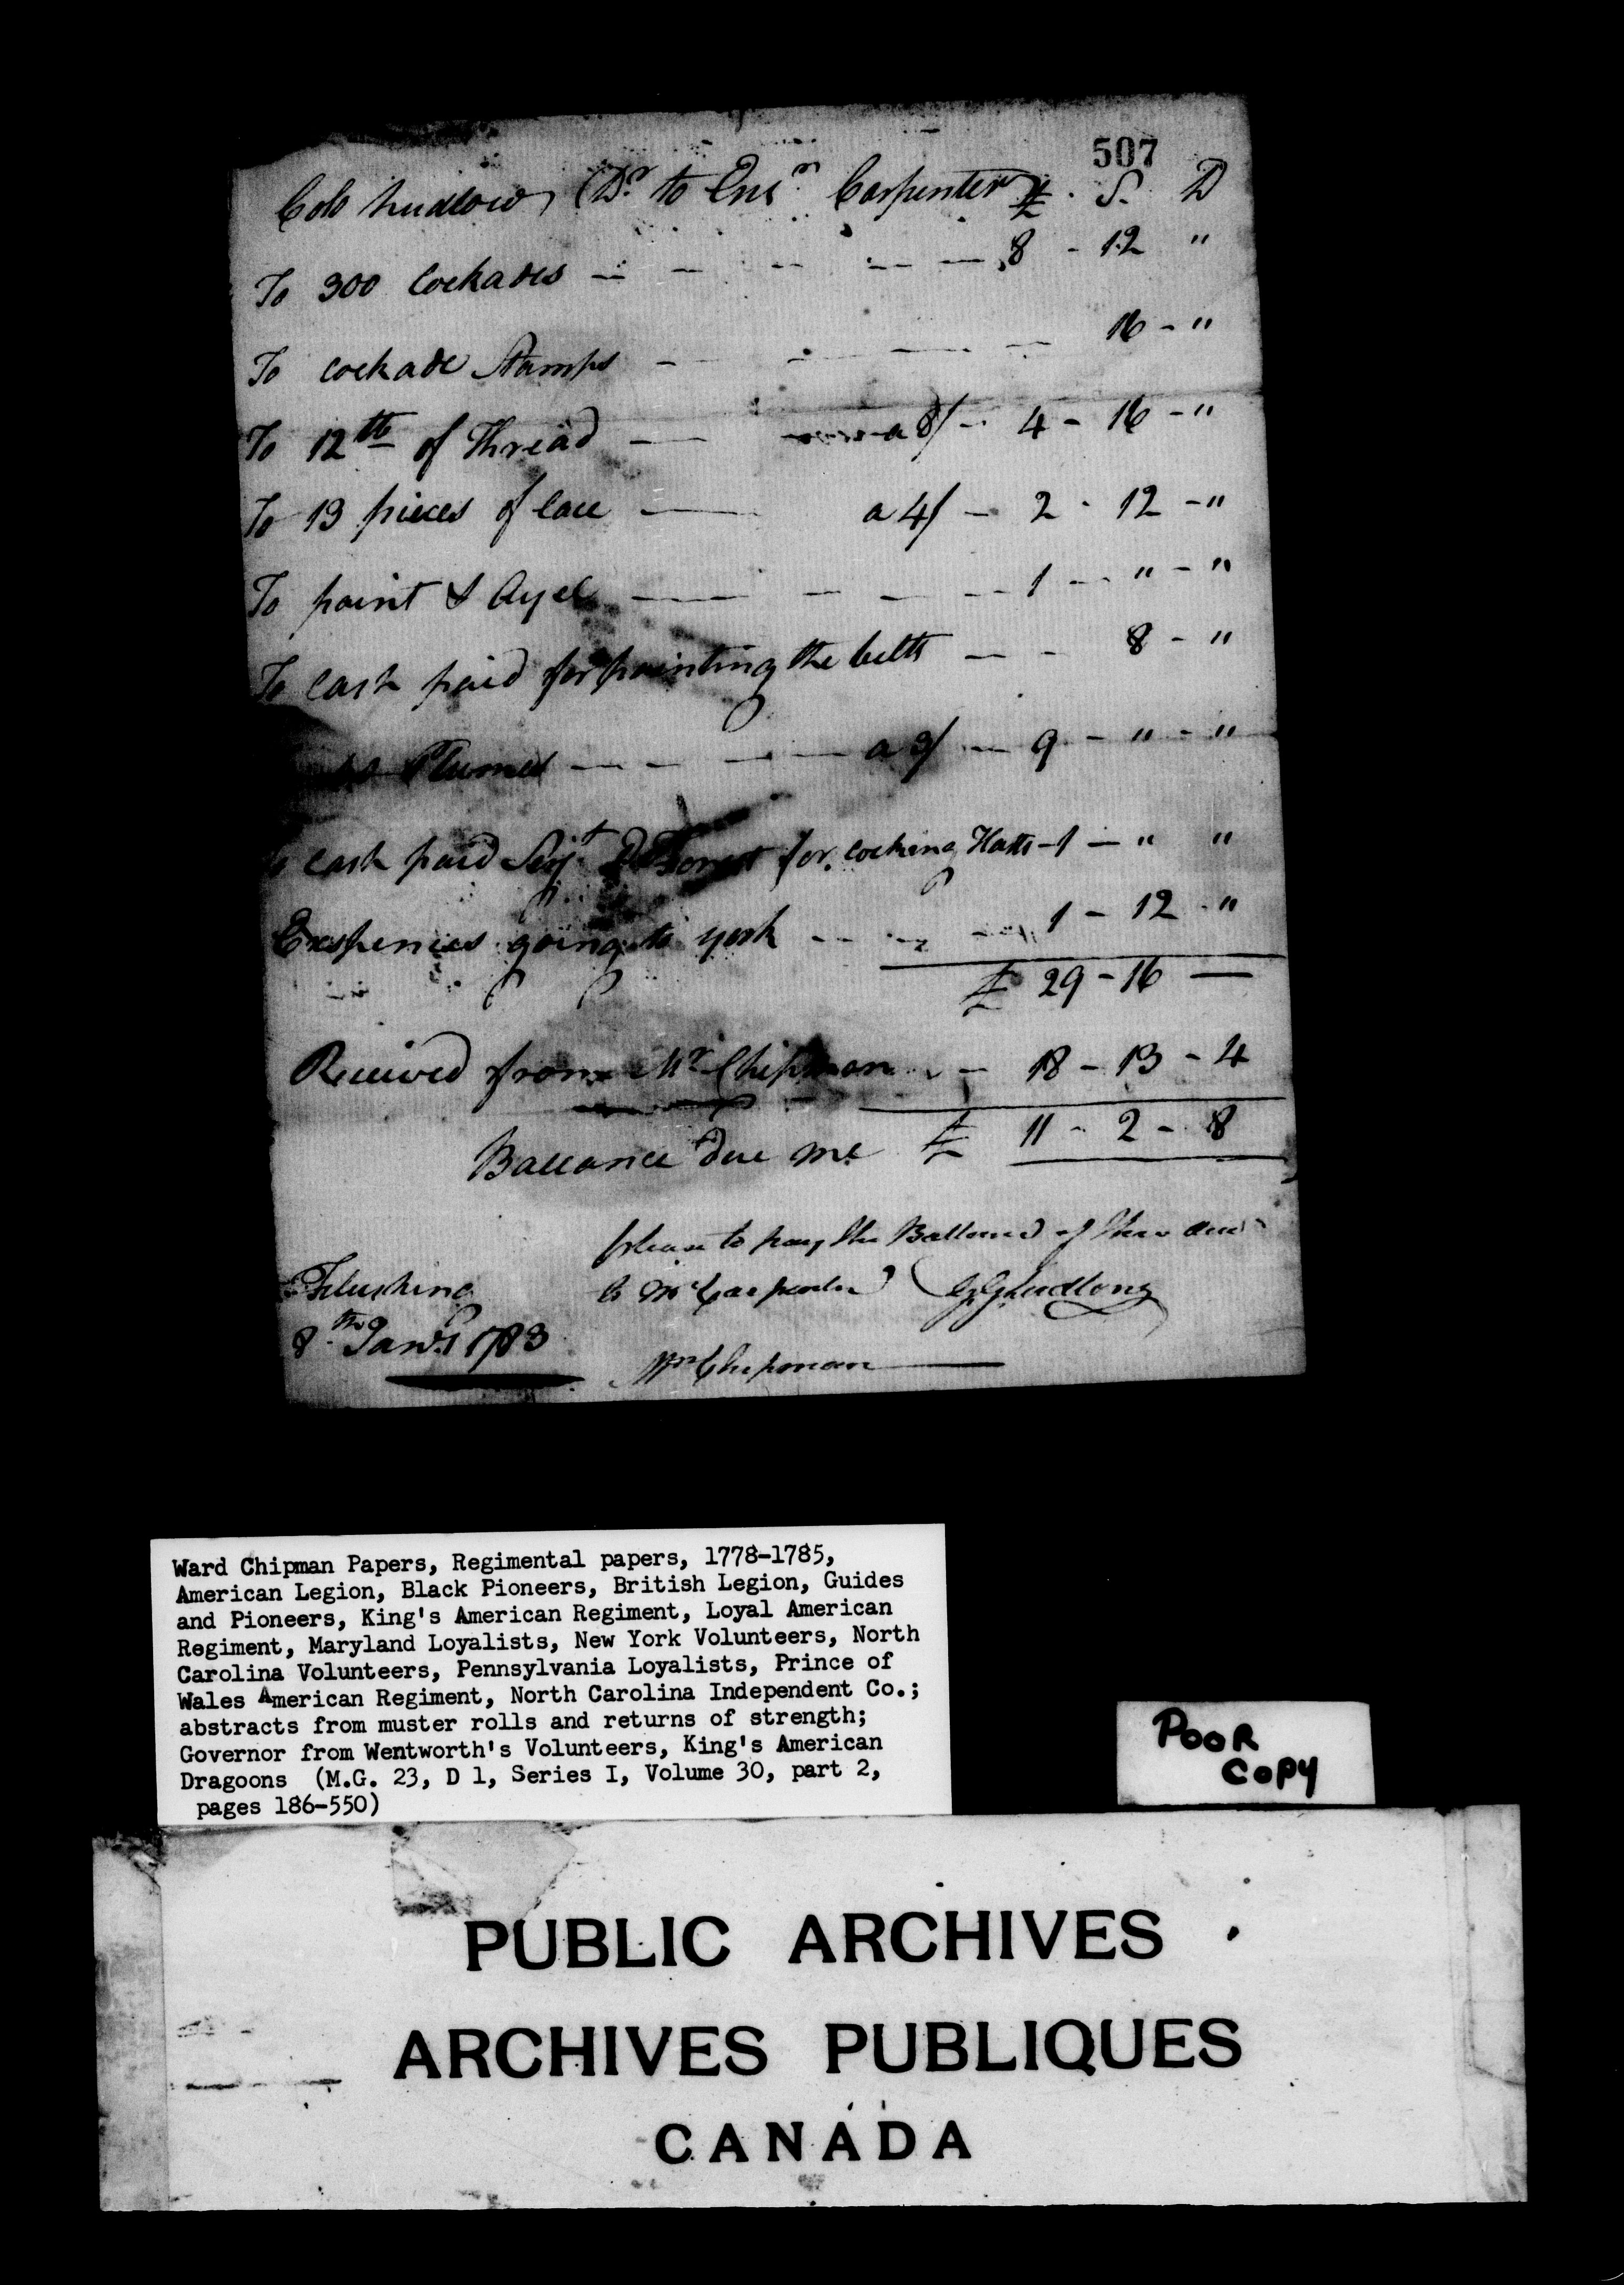 507
Colo Ludlow, Dr to Ensn Carpenter £ . S. D
To 300 Cockades — — — — — 8 - 12 "
To cockade Stamps — — — — 16 - "
To 12 lb of Thread — — a 8/ — 4 - 16 - "
To 13 pieces of lace — a 4/ — 2 - 12 - "
To paint & Oyel — — — — 1 — " - "
To Cash paid for painting the belts — - 8 - "
Plumes — — — — a 3/ — 9 - " - "
cash paid Serjt for cocking Hatts - 1 — " "
Exspences going to york — — — 1 - 12 - "
£ 29 - 16 —
Received from Mr Chipman — 18 - 13 - 4
Ballance due me £ 11 - 2 - 8
please to pay the Ballance of this acct
to Mr Carpenter G G Ludlow
Flushing
8th Jany 1783
Mr Chipman
Ward Chipman Papers, Regimental papers, 1778-1785,
American Legion, Black Pioneers, British Legion, Guides
and Pioneers, King's American Regiment, Loyal American
Regiment, Maryland Loyalists, New York Volunteers, North
Carolina Volunteers, Pennsylvania Loyalists, Prince of
Wales American Regiment, North Carolina Independent Co.;
abstracts from muster rolls and returns of strength;
Governor from Wentworth's Volunteers, King's American
Dragoons (M.G. 23, D 1, Series I, Volume 30, part 2,
pages 186-550)
POOR
COPY
PUBLIC ARCHIVES
ARCHIVES PUBLIQUES
CANADA